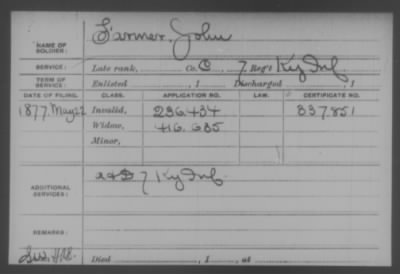 NAME OF SOLDIER: Farmer, John
SERVICE: Late rank, Co. C, 7 Reg't Ky Inf
TERM OF SERVICE: Enlisted , 1 Discharged , 1
DATE OF FILING. CLASS. APPLICATION NO. LAW. CERTIFICATE NO.
1877. May 22 Invalid, 236434 337.851
Widow, 416.635
Minor,
ADDITIONAL SERVICES: 7 Ky Inf.
REMARKS:
Died , 1 , at